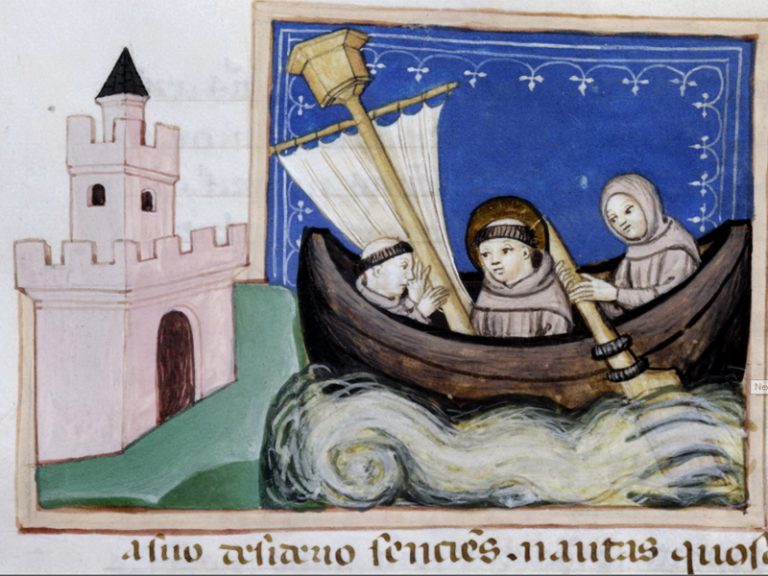 a suo desiderio senciēs. nautas
Ne